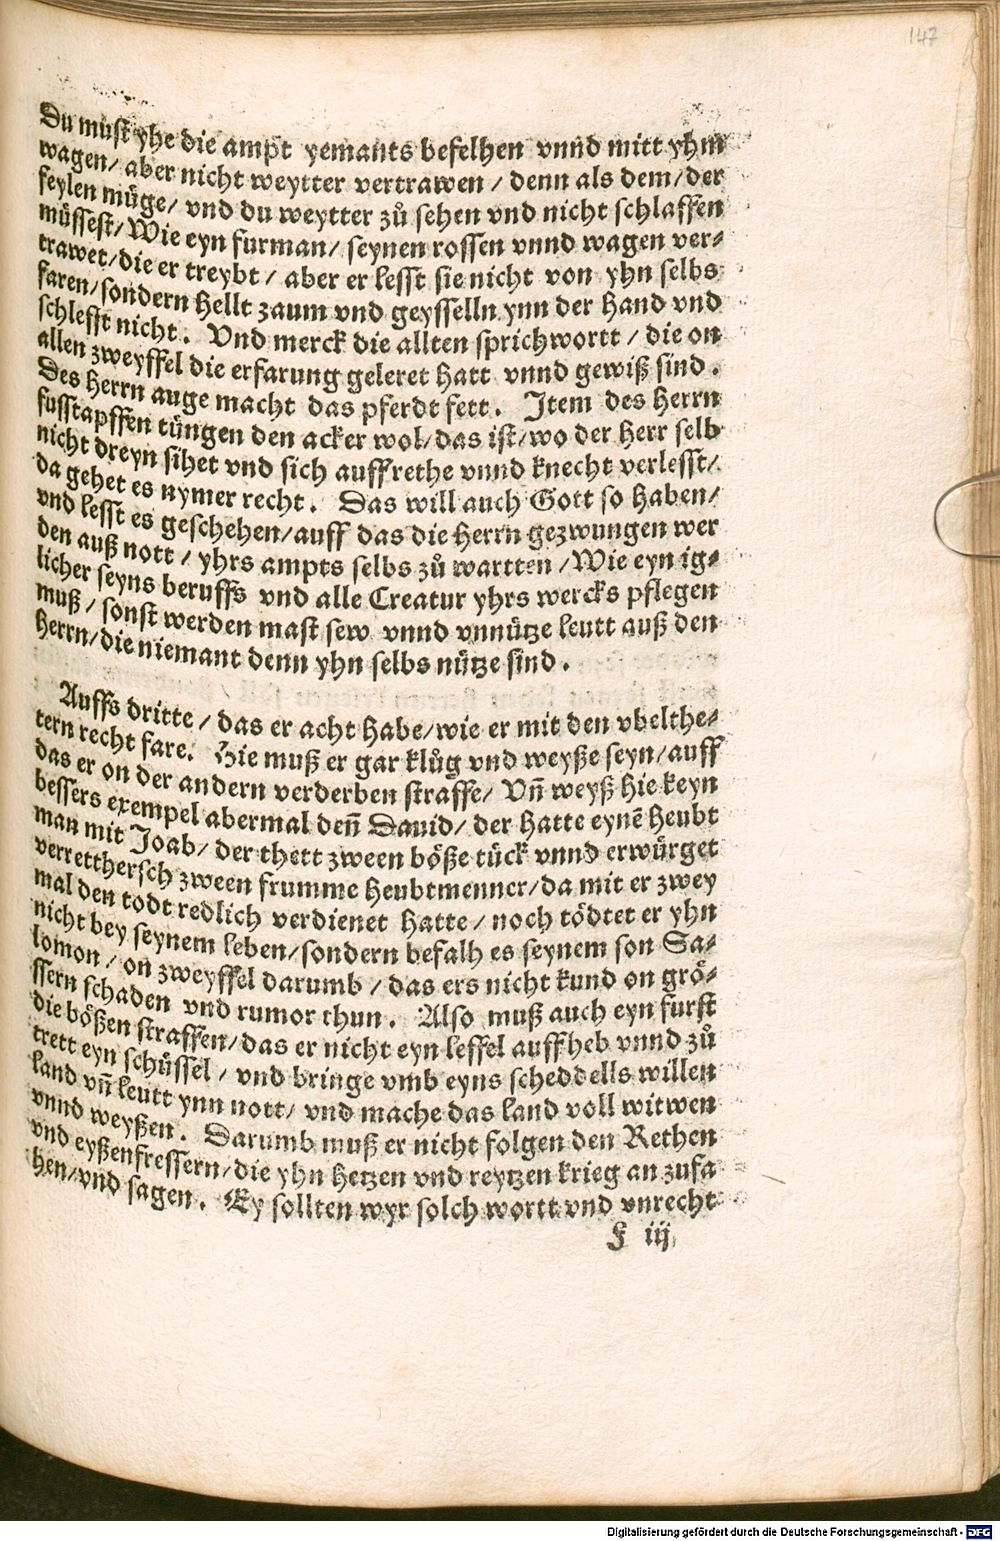 147
Du must yhe die ampt yemants befelhen vnnd mitt yhm
wagen/ aber nicht weytter vertrawen / denn als dem/ der
feylen müge/ vnd du weytter zů sehen vnd nicht schlaffen
müssest/ Wie eyn furman/ seynen rossen vnnd wagen ver-
trawet/ die er treybt / aber er lesst sie nicht von yhn selbs
faren/ sondern hellt zaum vnd geysselln ynn der hand vnd
schlefft nicht. Vnd merck die allten sprichwortt / die on
allen zweyffel die erfarung geleret hatt vnnd gewiß sind.
Des herrn auge macht das pferdt fett. Item des herrn
fusstapffen tüngen den acker wol/ das ist/ wo der herr selb
nicht dreyn sihet vnd sich auff rethe vnnd knecht verlesst/
da gehet es nymer recht. Das will auch Gott so haben/
vnd lesst es geschehen/ auff das die herrn gezwungen wer
den auß nott / yhrs ampts selbs zů wartten / Wie eyn ig-
licher seyns beruffs vnd alle Creatur yhrs wercks pflegen
muß / sonst werden mast sew vnnd vnnütze leutt auß den
herrn/ die niemant denn yhn selbs nütze sind.
Auffs dritte / das er acht habe/ wie er mit den vbelthe-
tern recht fare. Hie muß er gar klůg vnd weyße seyn/ auff
das er on der andern verderben straffe/ Vn̄ weyß hie keyn
bessers exempel abermal den̄ Dauid/ der hatte eynē heubt
man mit Joab/ der thett zween böße tück vnnd erwürget
verretthersch zween frumme heubtmenner/ da mit er zwey
mal den todt redlich verdienet hatte / noch tödtet er yhn
nicht bey seynem leben/ sondern befalh es seynem son Sa-
lomon / on zweyffel darumb / das ers nicht kund on grö-
ssern schaden vnd rumor thun. Also muß auch eyn furst
die bößen straffen/ das er nicht eyn leffel auffheb vnnd zů
trett eyn schüssel / vnd bringe vmb eyns scheddells willen
land vn̄ leutt ynn nott/ vnd mache das land voll witwen
vnnd weyßen. Darumb muß er nicht folgen den Rethen
vnd eyßenfressern/ die yhn hetzen vnd reytzen krieg an zufa
hen/ vnd sagen. Ey sollten wyr solch wortt vnd vnrecht
iij
Digitalisierung gefördert durch die Deutsche Forschungsgemeinschaft - DFG